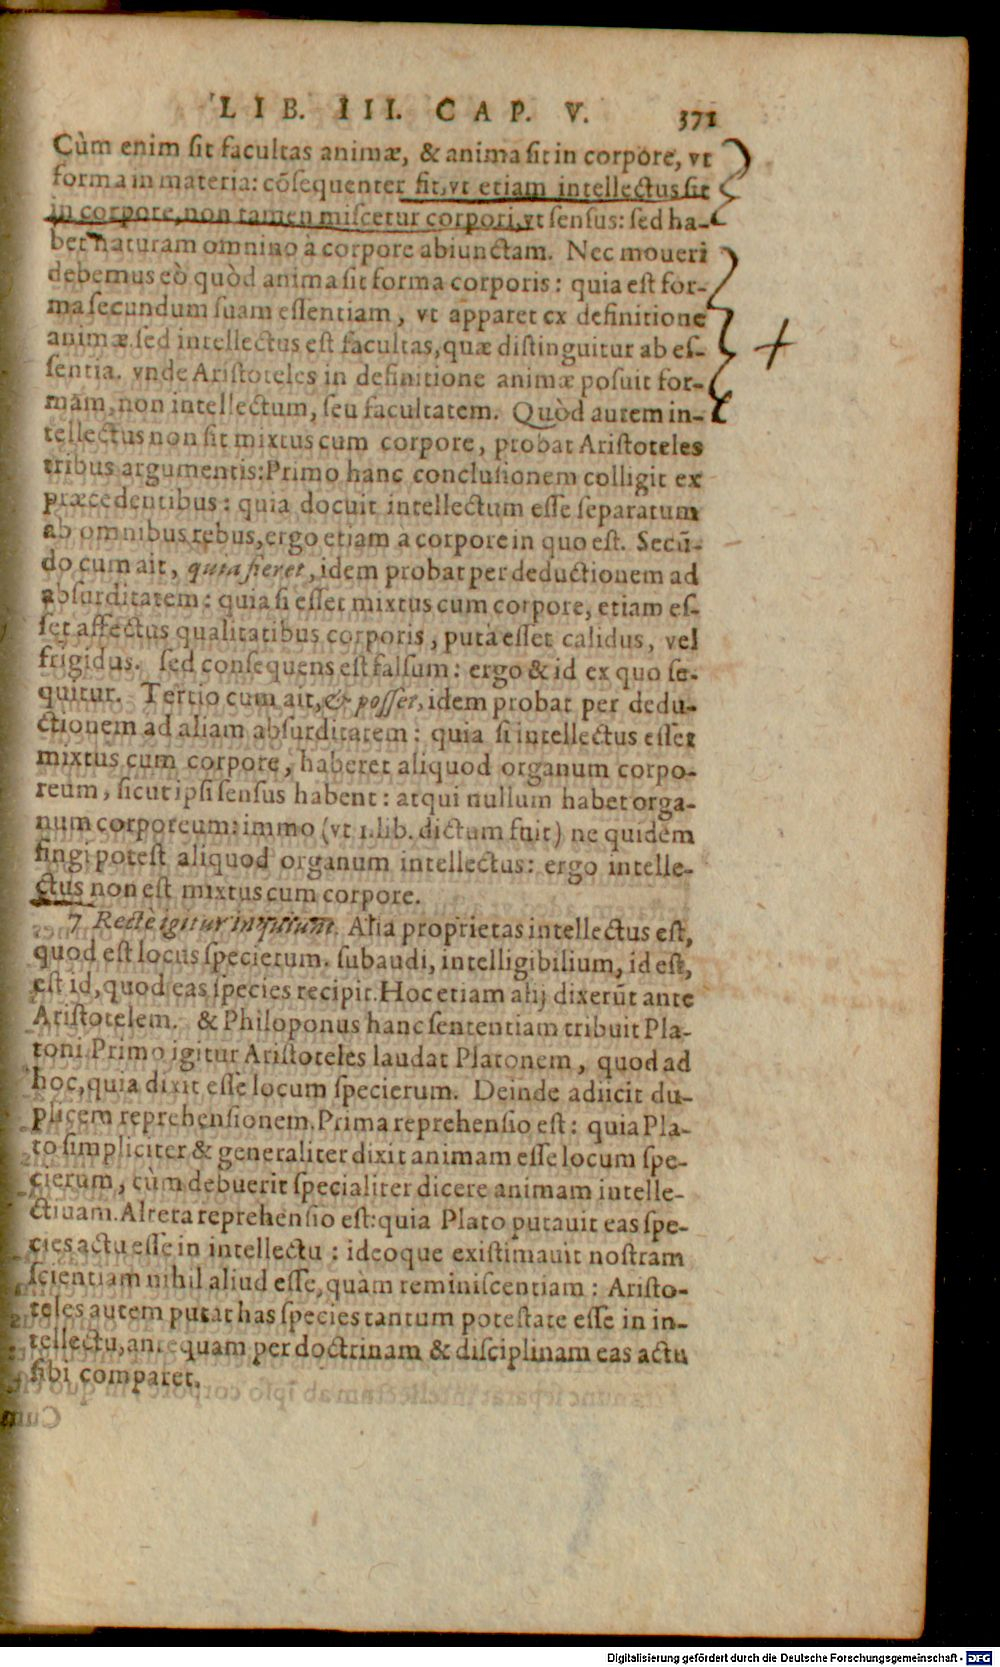 LIB. III. CAP. V. 371
Cùm enim sit facultas animæ, & anima sit in corpore, vt
forma in materia: cōsequenter fit, vt etiam intellectus sit
in corpore, non tamen miscetur corpori, vt sensus: sed ha-
bet naturam omnino à corpore abiunctam. Nec moueri
debemus eò quòd anima sit forma corporis: quia est for-
ma secundum suam essentiam, vt apparet ex definitione
animæ. sed intellectus est facultas, quæ distinguitur ab es-
sentia. vnde Aristoteles in definitione animæ posuit for-
mam, non intellectum, seu facultatem. Quòd autem in-
tellectus non sit mixtus cum corpore, probat Aristoteles
tribus argumentis: Primo hanc conclusionem colligit ex
præcedentibus: quia docuit intellectum esse separatum
ab omnibus rebus, ergo etiam à corpore in quo est. Secū-
do cum ait, quia fieret, idem probat per deductionem ad
absurditatem: quia si esset mixtus cum corpore, etiam es-
set affectus qualitatibus corporis, putà esset calidus, vel
frigidus. sed consequens est falsum: ergo & id ex quo se-
quitur. Tertio cum ait, & posset, idem probat per dedu-
ctionem ad aliam absurditatem: quia si intellectus esset
mixtus cum corpore, haberet aliquod organum corpo-
reum, sicut ipsi sensus habent: atqui nullum habet orga-
num corporeum: immo (vt 1. lib. dictum fuit) ne quidem
fingi potest aliquod organum intellectus: ergo intelle-
ctus non est mixtus cum corpore.
7 Rectè igitur inquiunt. Alia proprietas intellectus est,
quod est locus specierum. subaudi, intelligibilium, id est,
est id, quod eas species recipit. Hoc etiam alij dixerūt ante
Aristotelem. & Philoponus hanc sententiam tribuit Pla-
toni. Primo igitur Aristoteles laudat Platonem, quod ad
hoc, quia dixit esse locum specierum. Deinde adiicit du-
plicem reprehensionem. Prima reprehensio est: quia Pla-
to simpliciter & generaliter dixit animam esse locum spe-
cierum, cùm debuerit specialiter dicere animam intelle-
ctiuam. Altera reprehensio est: quia Plato putauit eas spe-
cies actu esse in intellectu: ideoque existimauit nostram
scientiam nihil aliud esse, quàm reminiscentiam: Aristo-
teles autem putat has species tantum potestate esse in in-
tellectu, antequam per doctrinam & disciplinam eas actu
sibi comparet.
Digitalisierung gefördert durch die Deutsche Forschungsgemeinschaft - DFG